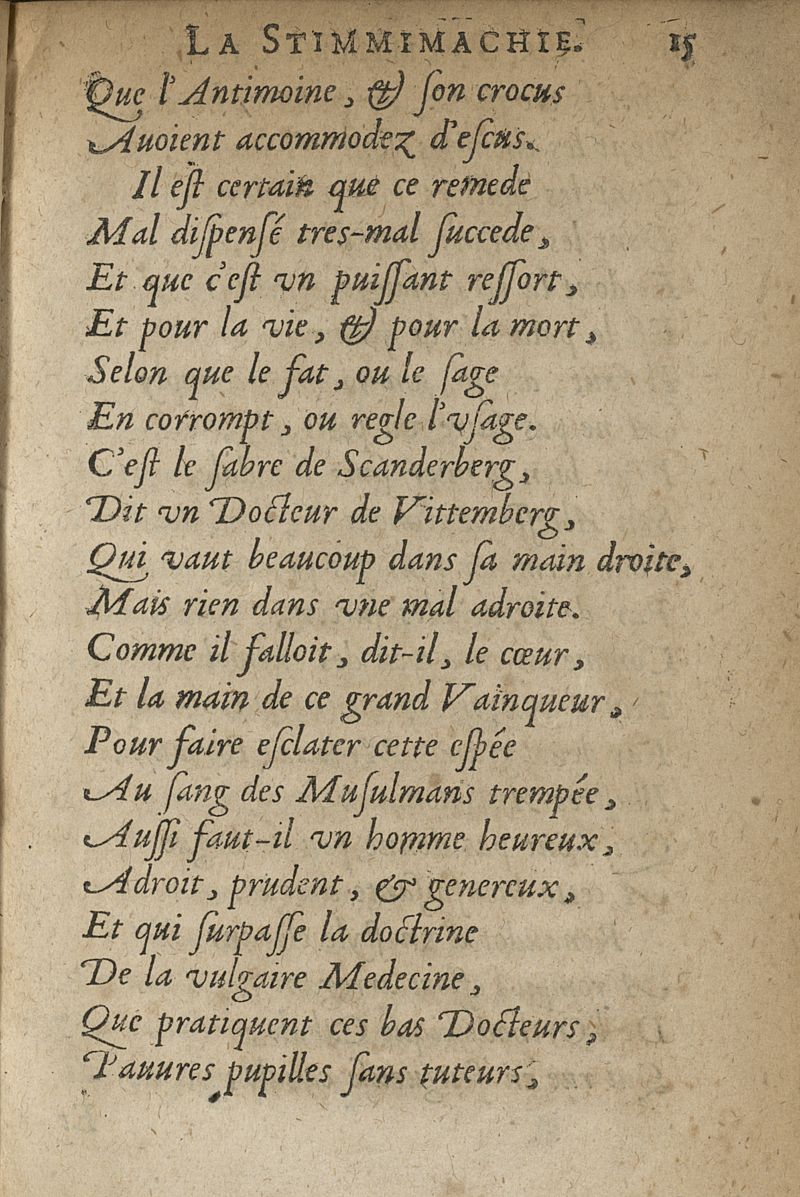 LA STIMMIMACHIE. 15
Que l'Antimoine, & ſon crocus
Auoient accommodez d'eſcus.
Il eſt certain que ce remede
Mal diſpenſé tres-mal ſuccede,
Et que c'eſt vn puiſſant reſſort,
Et pour la vie, & pour la mort,
Selon que le fat, ou le ſage
En corrompt, ou regle l'vſage.
C'eſt le ſabre de Scanderberg,
Dit vn Docteur de Vittemberg,
Qui vaut beaucoup dans ſa main droite,
Mais rien dans vne mal adroite.
Comme il falloit, dit-il, le cœur,
Et la main de ce grand Vainqueur,
Pour faire eſclater cette eſpée
Au ſang des Muſulmans trempée,
Auſſi faut-il vn homme heureux,
Adroit, prudent, & genereux,
Et qui ſurpaſſe la doctrine
De la vulgaire Medecine,
Que pratiquent ces bas Docteurs,
Pauures pupilles ſans tuteurs,